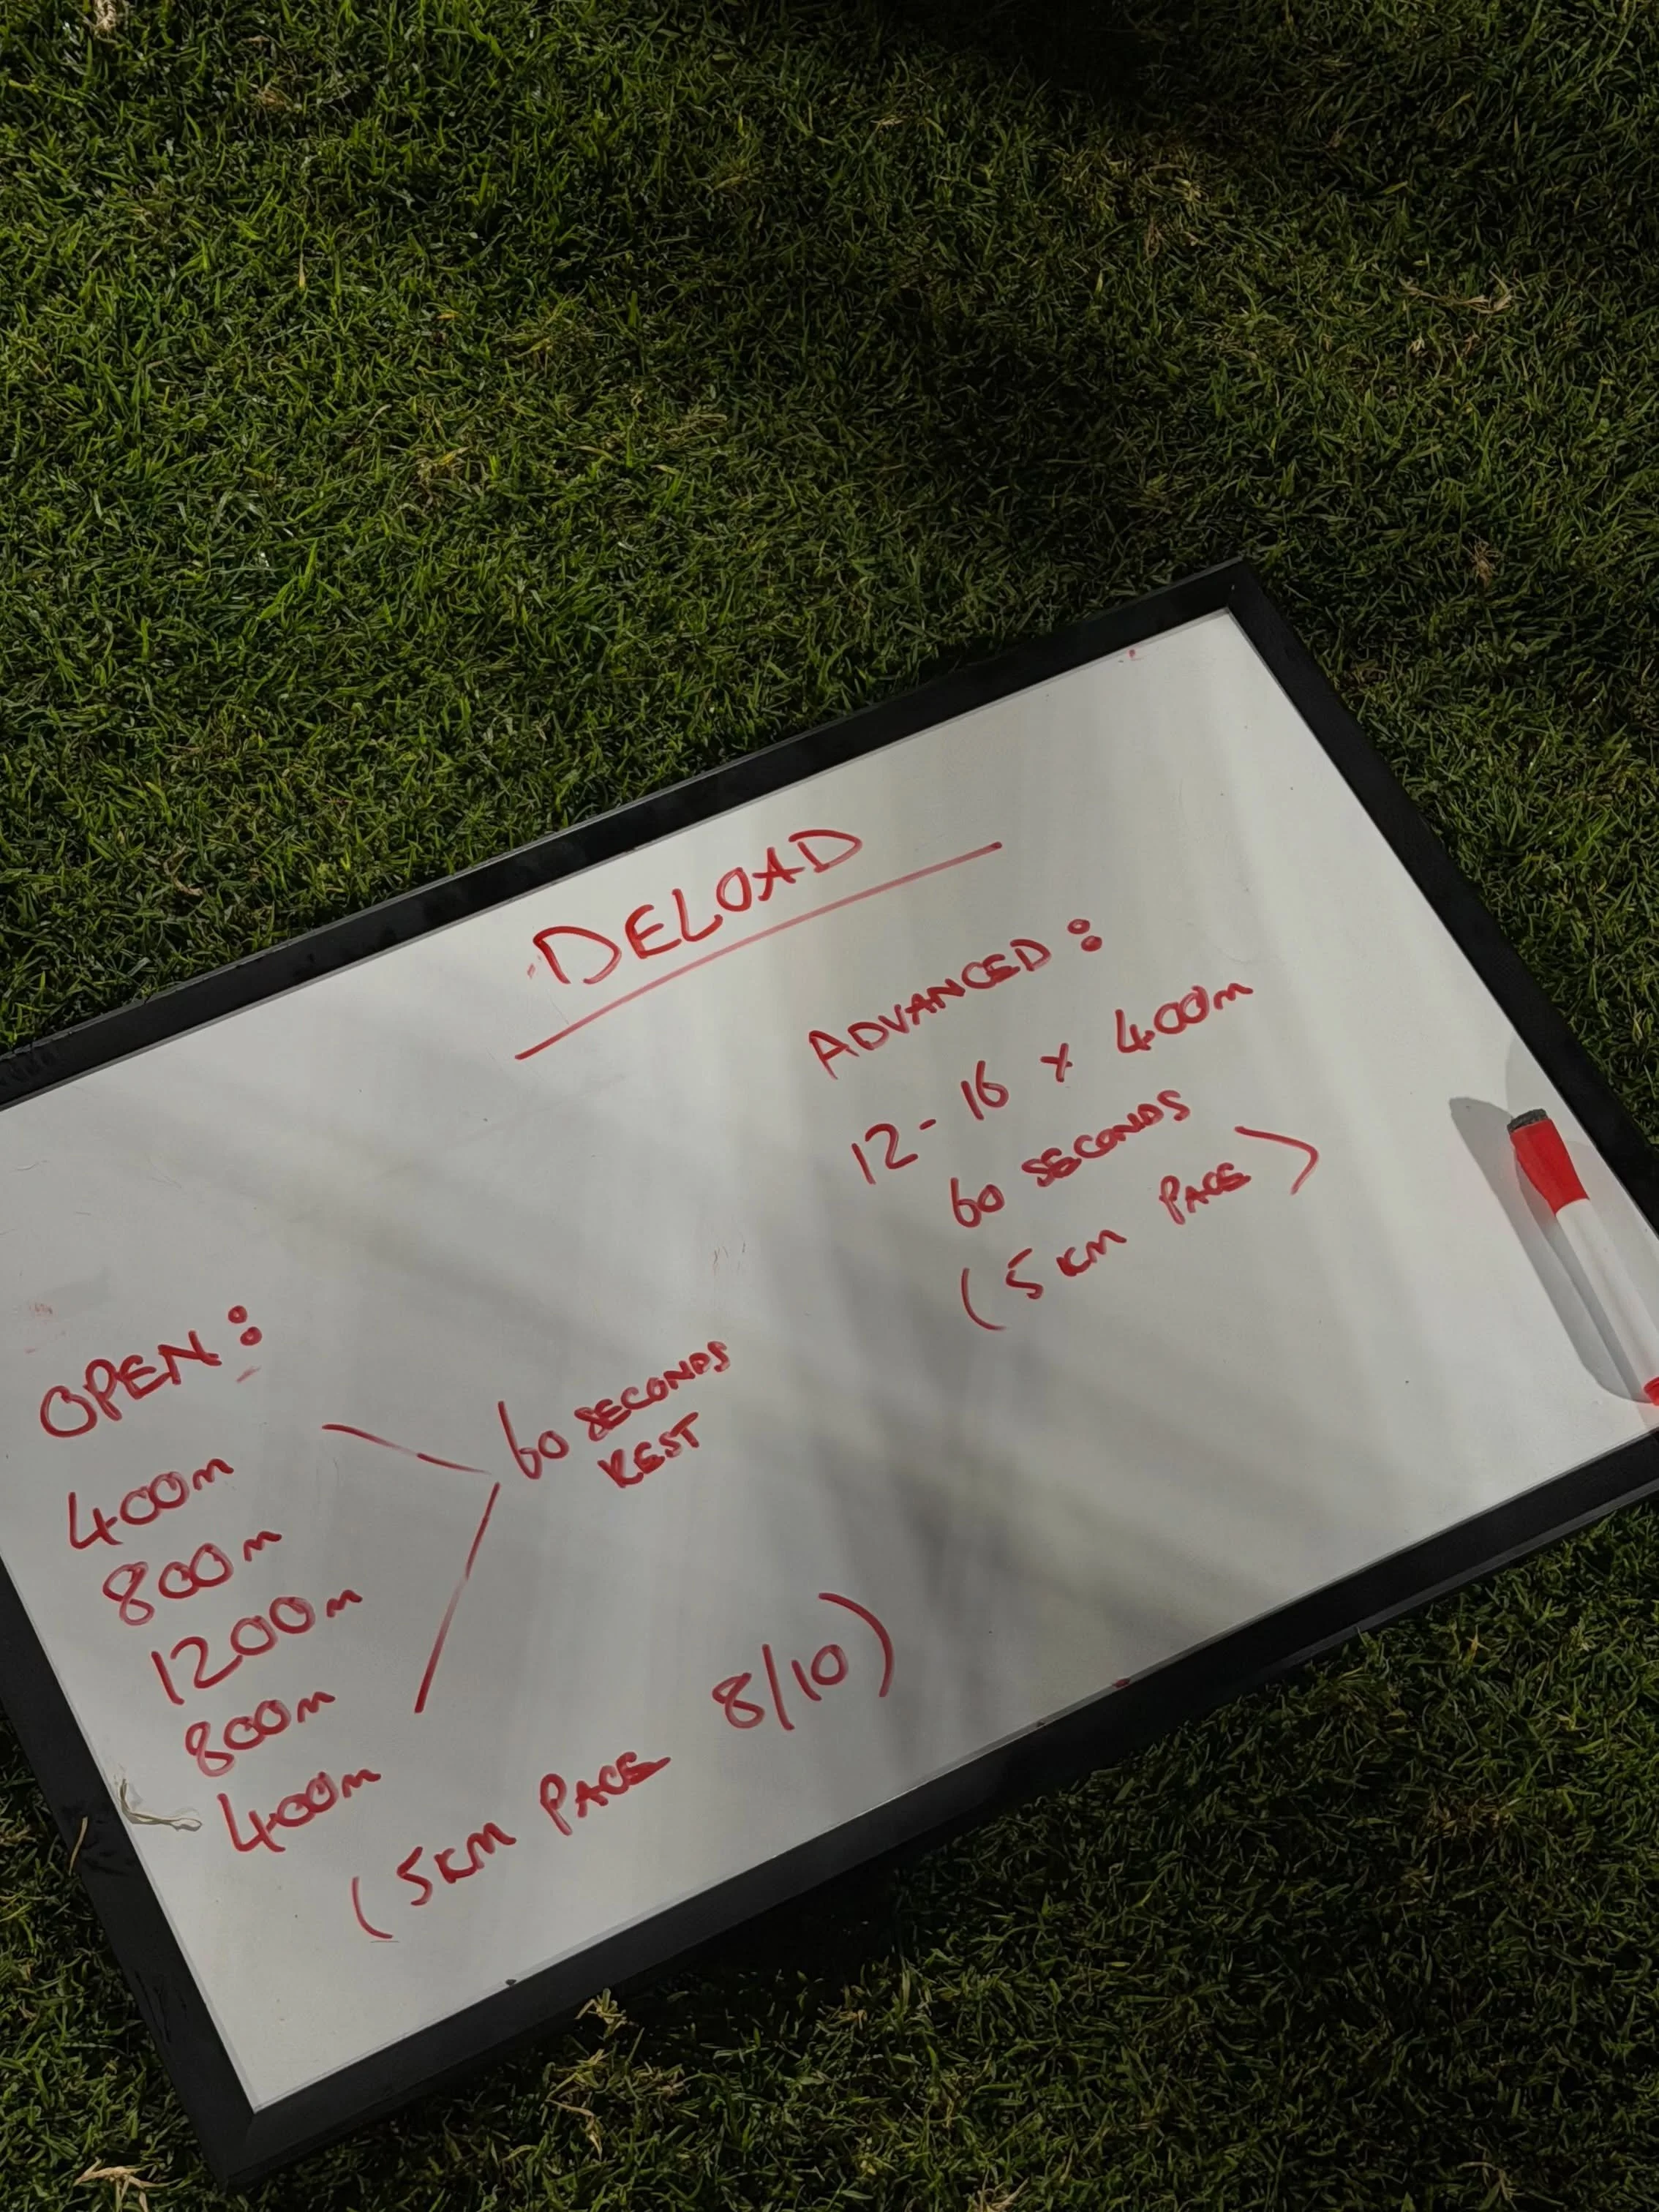 DELOAD
OPEN:
400m
800m
1200m
800m
400m
60 SECONDS
REST
(5KM PACE 8/10)
ADVANCED:
12-16 x 400m
60 SECONDS
(5KM PACE)